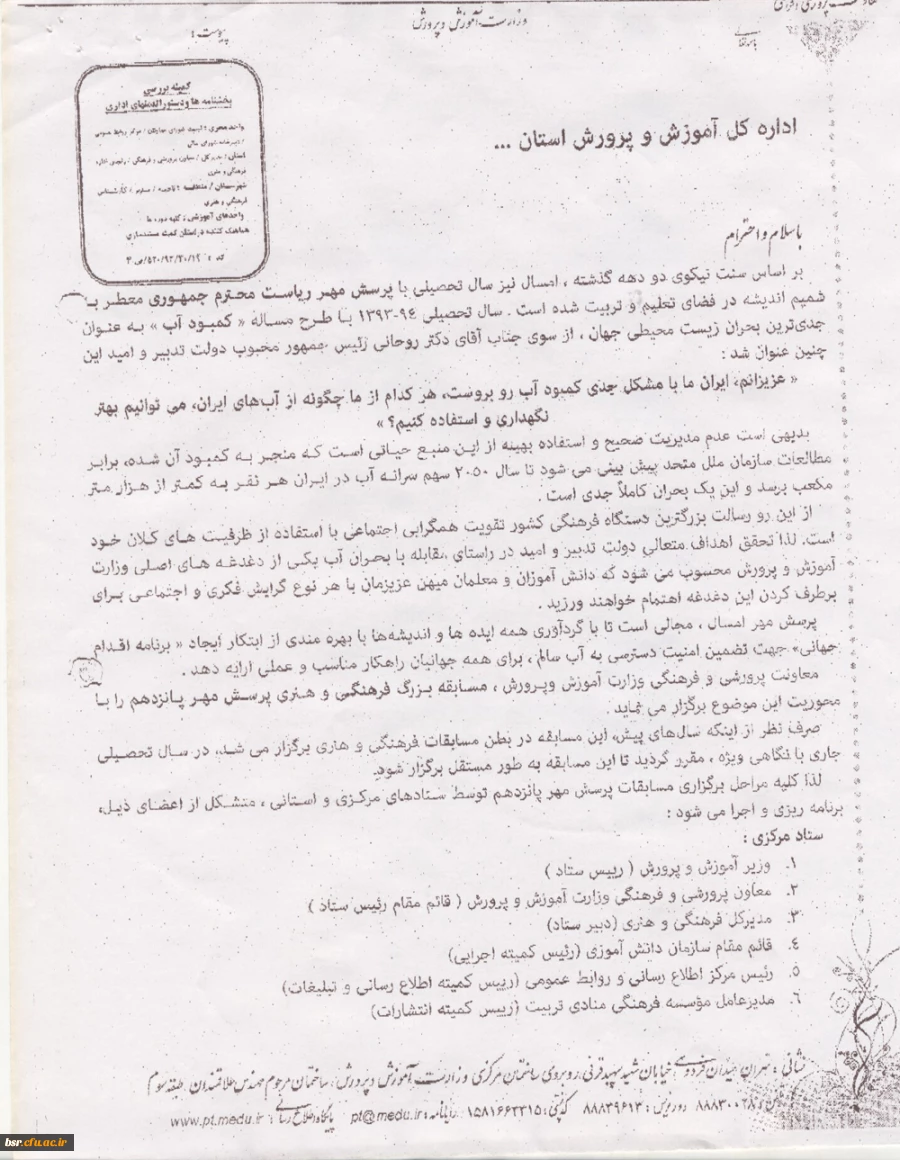 وزارت آموزش و پرورش
پیوست :
کمیته بررسی
بخشنامه ها و دستورالعملهای اداری
هماهنگ کننده در استان کمیته مستندسازی
اداره کل آموزش و پرورش استان ...
با سلام و احترام
بر اساس سنت نیکوی دو دهه گذشته ، امسال نیز سال تحصیلی با پرسش مهر ریاست محترم جمهوری معطر به
شمیم اندیشه در فضای تعلیم و تربیت شده است . سال تحصیلی ۹٤-۱۳۹۳ با طرح مساله « کمبود آب » به عنوان
جدی‌ترین بحران زیست محیطی جهان ، از سوی جناب آقای دکتر روحانی رئیس جمهور محبوب دولت تدبیر و امید این
چنین عنوان شد :
« عزیزانم، ایران ما با مشکل جدی کمبود آب رو بروست، هر کدام از ما چگونه از آب‌های ایران، می توانیم بهتر
نگهداری و استفاده کنیم؟ »
بدیهی است عدم مدیریت صحیح و استفاده بهینه از این منبع حیاتی است که منجر به کمبود آن شده، برابر
مطالعات سازمان ملل متحد پیش بینی می شود تا سال ۲۰۵۰ سهم سرانه آب در ایران هر نفر به کمتر از هزار متر
مکعب برسد و این یک بحران کاملاً جدی است .
از این رو رسالت بزرگترین دستگاه فرهنگی کشور تقویت همگرایی اجتماعی با استفاده از ظرفیت های کلان خود
است. لذا تحقق اهداف متعالی دولت تدبیر و امید در راستای مقابله با بحران آب یکی از دغدغه های اصلی وزارت
آموزش و پرورش محسوب می شود که دانش آموزان و معلمان میهن عزیزمان با هر نوع گرایش فکری و اجتماعی برای
برطرف کردن این دغدغه اهتمام خواهند ورزید .
پرسش مهر امسال ، مجالی است تا با گردآوری همه ایده ها و اندیشه‌ها با بهره مندی از ابتکار ایجاد « برنامه اقدام
جهانی» جهت تضمین امنیت دسترسی به آب سالم ، برای همه جهانیان راهکار مناسب و عملی ارایه دهد .
معاونت پرورشی و فرهنگی وزارت آموزش وپرورش ، مسابقه بزرگ فرهنگی و هنری پرسش مهر پانزدهم را با
محوریت این موضوع برگزار می نماید .
صرف نظر از اینکه سال‌های پیش، این مسابقه در بطن مسابقات فرهنگی و هنری برگزار می شد، در سال تحصیلی
جاری با نگاهی ویژه ، مقرر گردید تا این مسابقه به طور مستقل برگزار شود.
لذا کلیه مراحل برگزاری مسابقات پرسش مهر پانزدهم توسط ستادهای مرکزی و استانی ، متشکل از اعضای ذیل،
برنامه ریزی و اجرا می شود :
ستاد مرکزی :
۱. وزیر آموزش و پرورش ( رییس ستاد )
۲. معاون پرورشی و فرهنگی وزارت آموزش و پرورش ( قائم مقام رئیس ستاد )
۳. مدیرکل فرهنگی و هنری (دبیر ستاد)
٤. قائم مقام سازمان دانش آموزی (رئیس کمیته اجرایی)
۵. رئیس مرکز اطلاع رسانی و روابط عمومی (رییس کمیته اطلاع رسانی و تبلیغات)
٦. مدیرعامل مؤسسه فرهنگی منادی تربیت (رییس کمیته انتشارات)
نشانی : تهران، میدان فردوسی، خیابان شهید سپهبد قرنی، روبروی ساختمان مرکزی وزارت آموزش و پرورش، ساختمان مرحوم مهندس علاقمندان، طبقه سوم
دورنویس : ۸۸۸۳۹۶۱۳ کدپستی : ۱۵۸۱۶۶۳۳۱۵ رایانامه : pt@medu.ir پایگاه اطلاع رسانی : www.pt.medu.ir
bsr.cfu.ac.ir